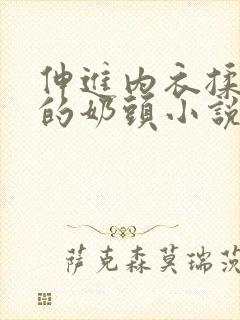 伸進內衣揉
的奶頭小說
萨克森莫瑞茨